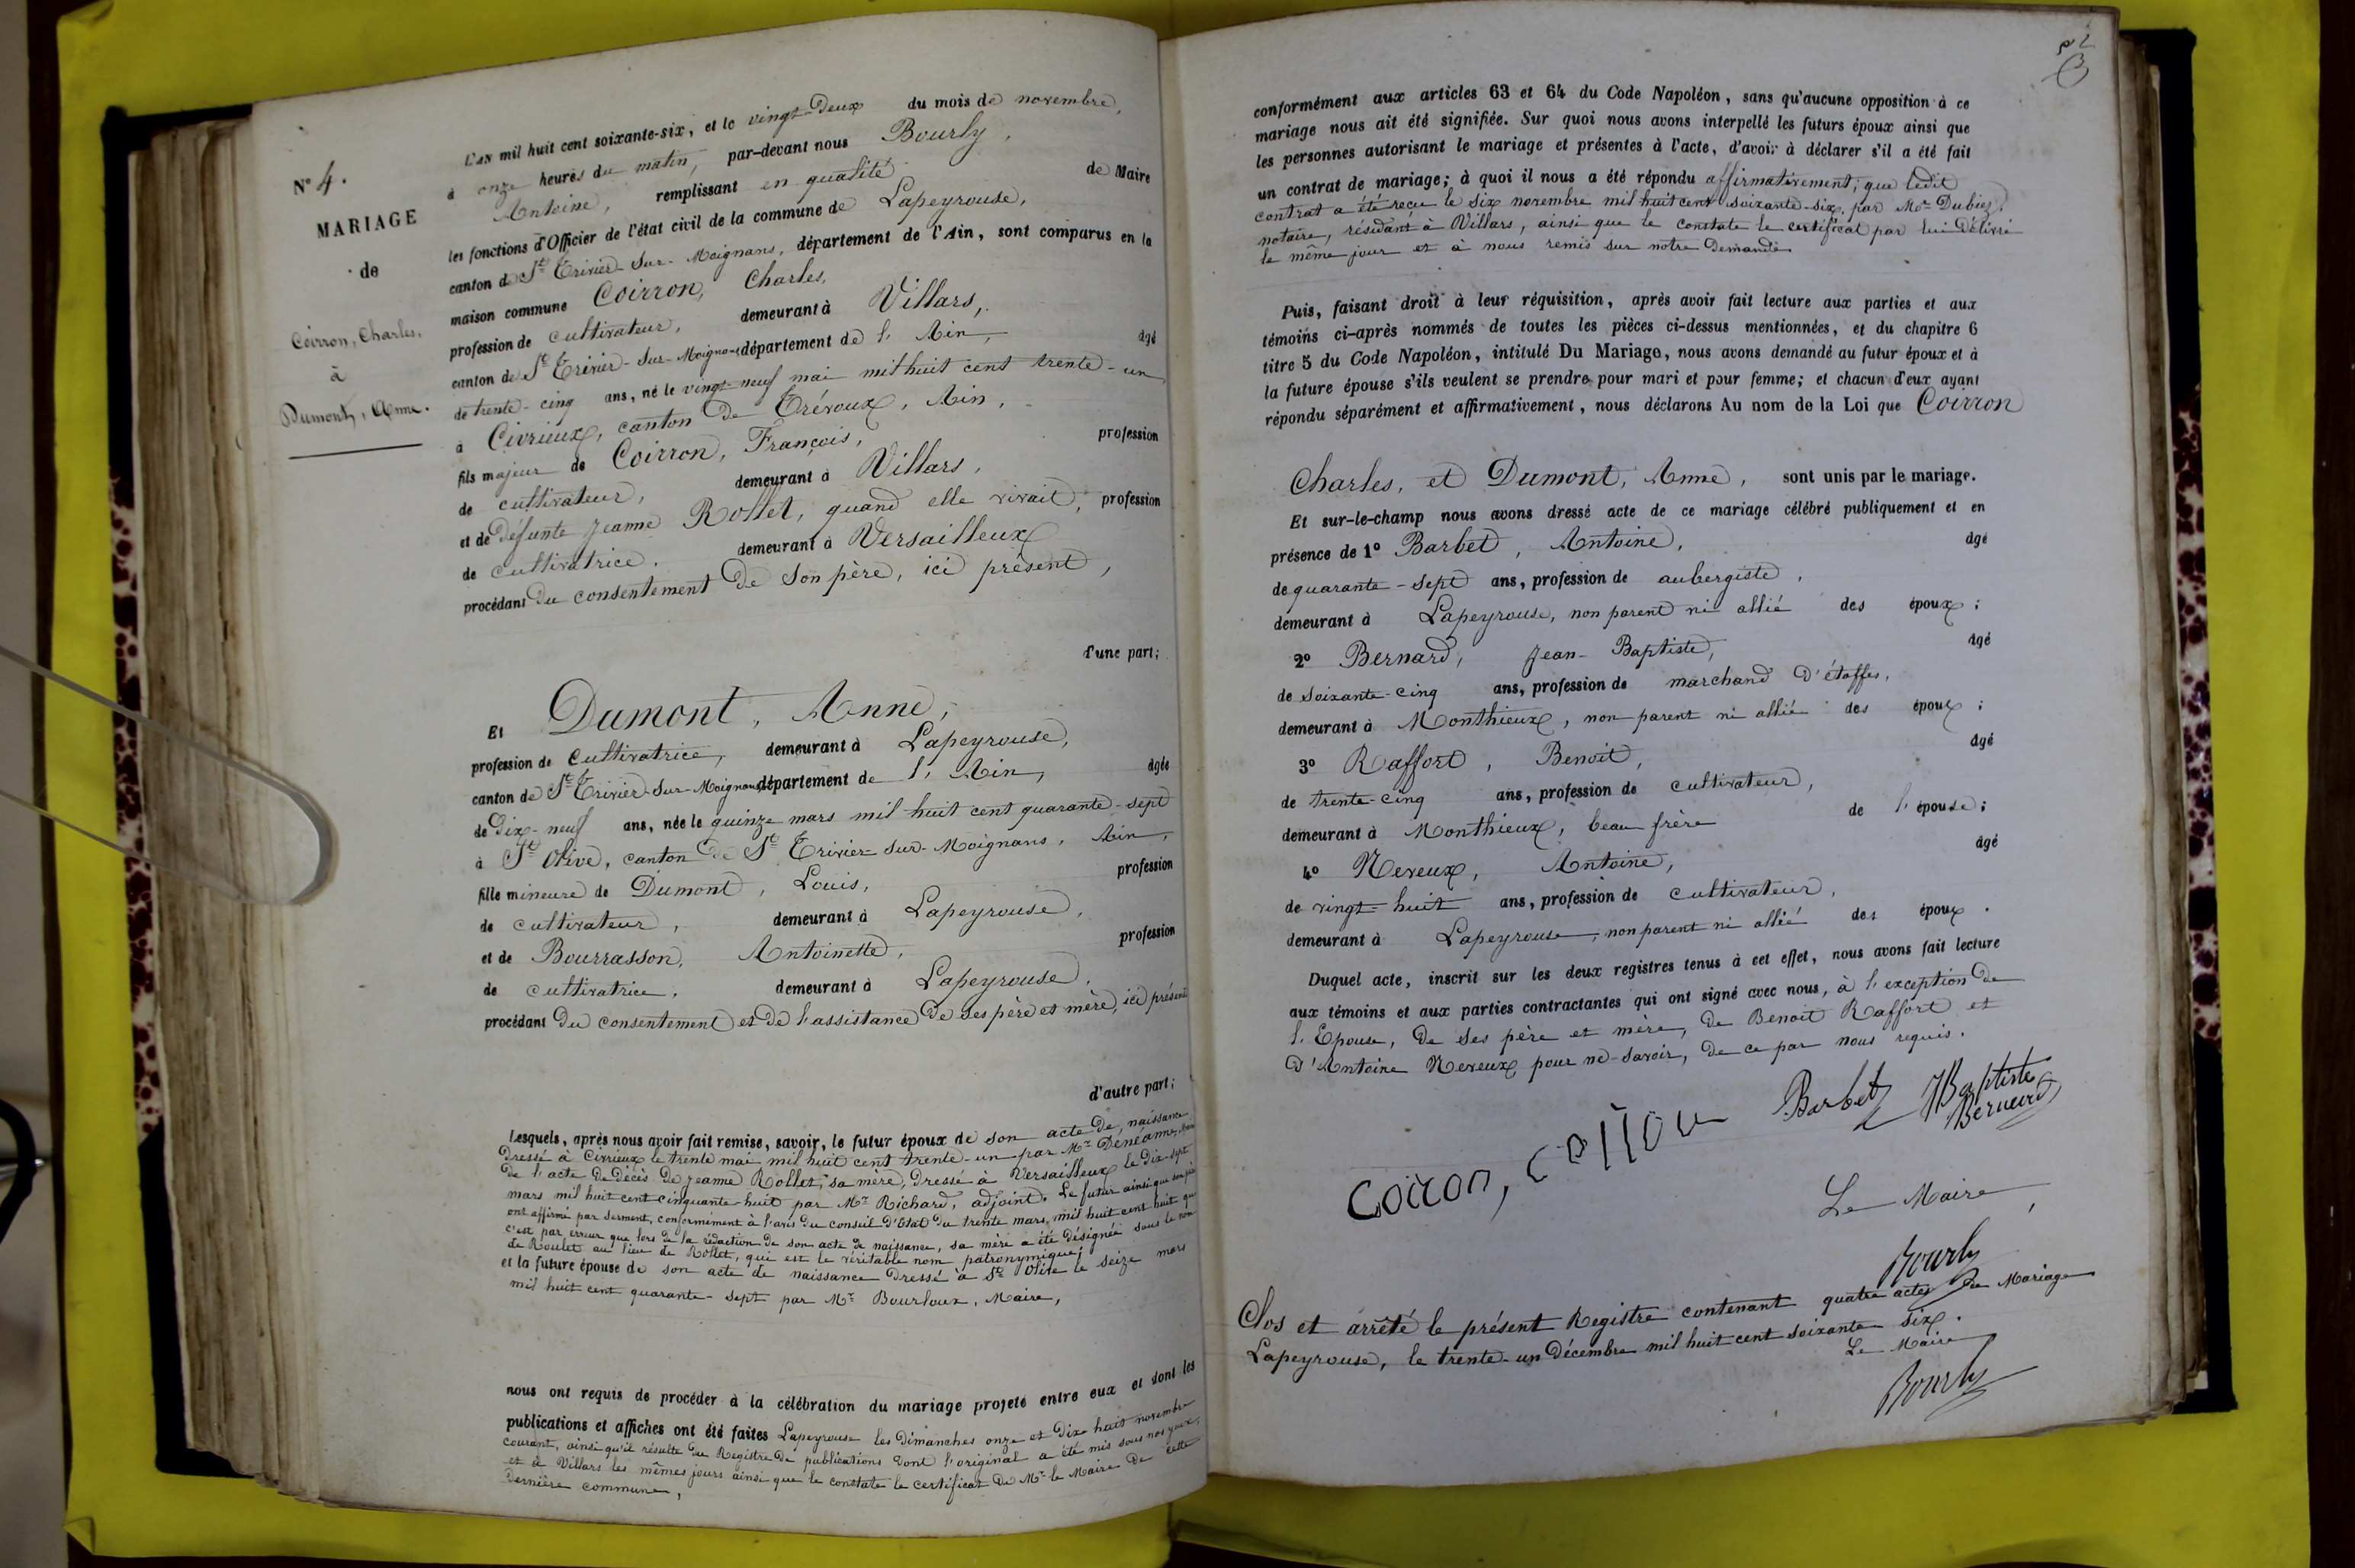 N° 4.
MARIAGE
de
Coirron, Charles.
à
Dumont, Anne.
L'AN mil huit cent soixante-six, et le vingt-Deux du mois de novembre,
à onze heures du matin, par-devant nous Bourly,
Antoine, remplissant en qualité de Maire
les fonctions d'Officier de l'état civil de la commune de Lapeyrouse,
canton de St Trivier-Sur-Moignans, département de l'Ain, sont comparus en la
maison commune Coirron, Charles,
profession de cultivateur, demeurant à Villars,
canton de St Trivier-Sur-Moignans, département de l'Ain, âgé
de trente-cinq ans, né le vingt-neuf mai mil huit cent trente-un
à Civrieux, canton de Trévoux, Ain,
fils majeur de Coirron, François, profession
de cultivateur, demeurant à Villars,
et de Défunte Jeanne Rollet, quand elle vivait, profession
de cultivatrice. demeurant à Versailleux
procédant du consentement de son père, ici présent,
d'une part;
Et Dumont, Anne,
profession de Cultivatrice, demeurant à Lapeyrouse,
canton de St Trivier-Sur-Moignans, département de l'Ain, âgée
de Dix-neuf ans, née le quinze mars mil huit cent quarante-sept
à Ste Olive, canton de St Trivier-sur-Moignans, Ain,
fille mineure de Dumont, Louis, profession
de cultivateur, demeurant à Lapeyrouse,
et de Bourrasson, Antoinette, profession
de cultivatrice, demeurant à Lapeyrouse,
procédant du consentement et de l'assistance de ses père et mère, ici présents
d'autre part;
Lesquels, après nous avoir fait remise, savoir, le futur époux de son acte de naissance
Dressé à Civrieux le trente mai mil huit cent trente-un par Mr Denéanne, Maire
de l'acte de décès de Jeanne Rollet, sa mère, dressé à Versailleux le dix-sept
mars mil huit cent cinquante-huit par Mr Richard, adjoint. Le futur ainsi que son père
ont affirmé par serment, conformément à l'avis du conseil d'Etat du trente mars mil huit cent huit que
c'est par erreur que lors de la rédaction de son acte de naissance, sa mère a été désignée sous le nom
de Roulet au lieu de Rollet, qui est le véritable nom patronymique;
et la future épouse de son acte de naissance Dressé à Ste Olive le seize mars
mil huit cent quarante-sept par Mr Bourloux, Maire,
nous ont requis de procéder à la célébration du mariage projeté entre eux et dont les
publications et affiches ont été faites Lapeyrouse les Dimanches onze et Dix-huit novembre
courant, ainsi qu'il résulte du Registre de publications dont l'original a été mis sous nos yeux,
et à Villars les mêmes jours ainsi que le constate le certificat de Mr le Maire de cette
Dernière commune,
conformément aux articles 63 et 64 du Code Napoléon, sans qu'aucune opposition à ce
mariage nous ait été signifiée. Sur quoi nous avons interpellé les futurs époux ainsi que
les personnes autorisant le mariage et présentes à l'acte, d'avoir à déclarer s'il a été fait
un contrat de mariage; à quoi il nous a été répondu affirmativement; que ledit
contrat a été reçu le six novembre mil huit cent soixante-six, par Me Dubiez,
notaire, résidant à Villars, ainsi que le constate le certificat par lui Délivré
le même jour et à nous remis sur notre Demande
Puis, faisant droit à leur réquisition, après avoir fait lecture aux parties et aux
témoins ci-après nommés de toutes les pièces ci-dessus mentionnées, et du chapitre 6
titre 5 du Code Napoléon, intitulé Du Mariage, nous avons demandé au futur époux et à
la future épouse s'ils veulent se prendre pour mari et pour femme; et chacun d'eux ayant
répondu séparément et affirmativement, nous déclarons Au nom de la Loi que Coirron
Charles, et Dumont, Anne, sont unis par le mariage.
Et sur-le-champ nous avons dressé acte de ce mariage célébré publiquement et en
présence de 1° Barbet, Antoine, âgé
de quarante-sept ans, profession de aubergiste,
demeurant à Lapeyrouse, non parent ni allié des époux;
2° Bernard, Jean-Baptiste, âgé
de soixante-cinq ans, profession de marchand d'étoffes,
demeurant à Monthieux, non parent ni allié des époux;
3° Raffort, Benoit, âgé
de trente-cinq ans, profession de cultivateur,
demeurant à Monthieux, beau frère de l'épouse;
4° Neveux, Antoine, âgé
de vingt-huit ans, profession de cultivateur,
demeurant à Lapeyrouse, non parent ni allié des époux.
Duquel acte, inscrit sur les deux registres tenus à cet effet, nous avons fait lecture
aux témoins et aux parties contractantes qui ont signé avec nous, à l'exception de
l'Epouse, de ses père et mère, de Benoit Raffort et
d'Antoine Neveux pour ne savoir, de ce par nous requis.
Coiron, Coiron Barbet JBaptiste
Bernard
Le Maire,
Bourly
Clos et arrêté le présent Registre contenant quatre actes de Mariage
Lapeyrouse, le trente-un Décembre mil huit cent soixante six.
Le Maire
Bourly